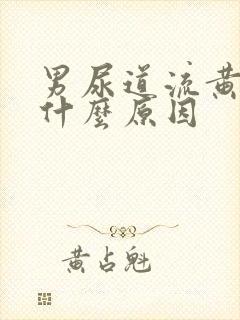 男尿道流黄
什麼原因
黄占魁